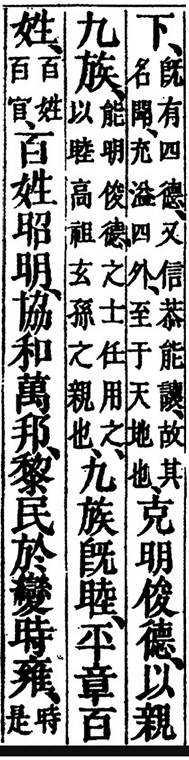 下、既有四德、又信恭能讓、故其名聞、充溢四外、至于天地也、克明俊德、以親
九族、能明俊德、之士任用之、以睦高祖玄孫之親也、九族既睦、平章百
姓、百姓百官、百姓昭明、協和萬邦、黎民於變時雍、時是